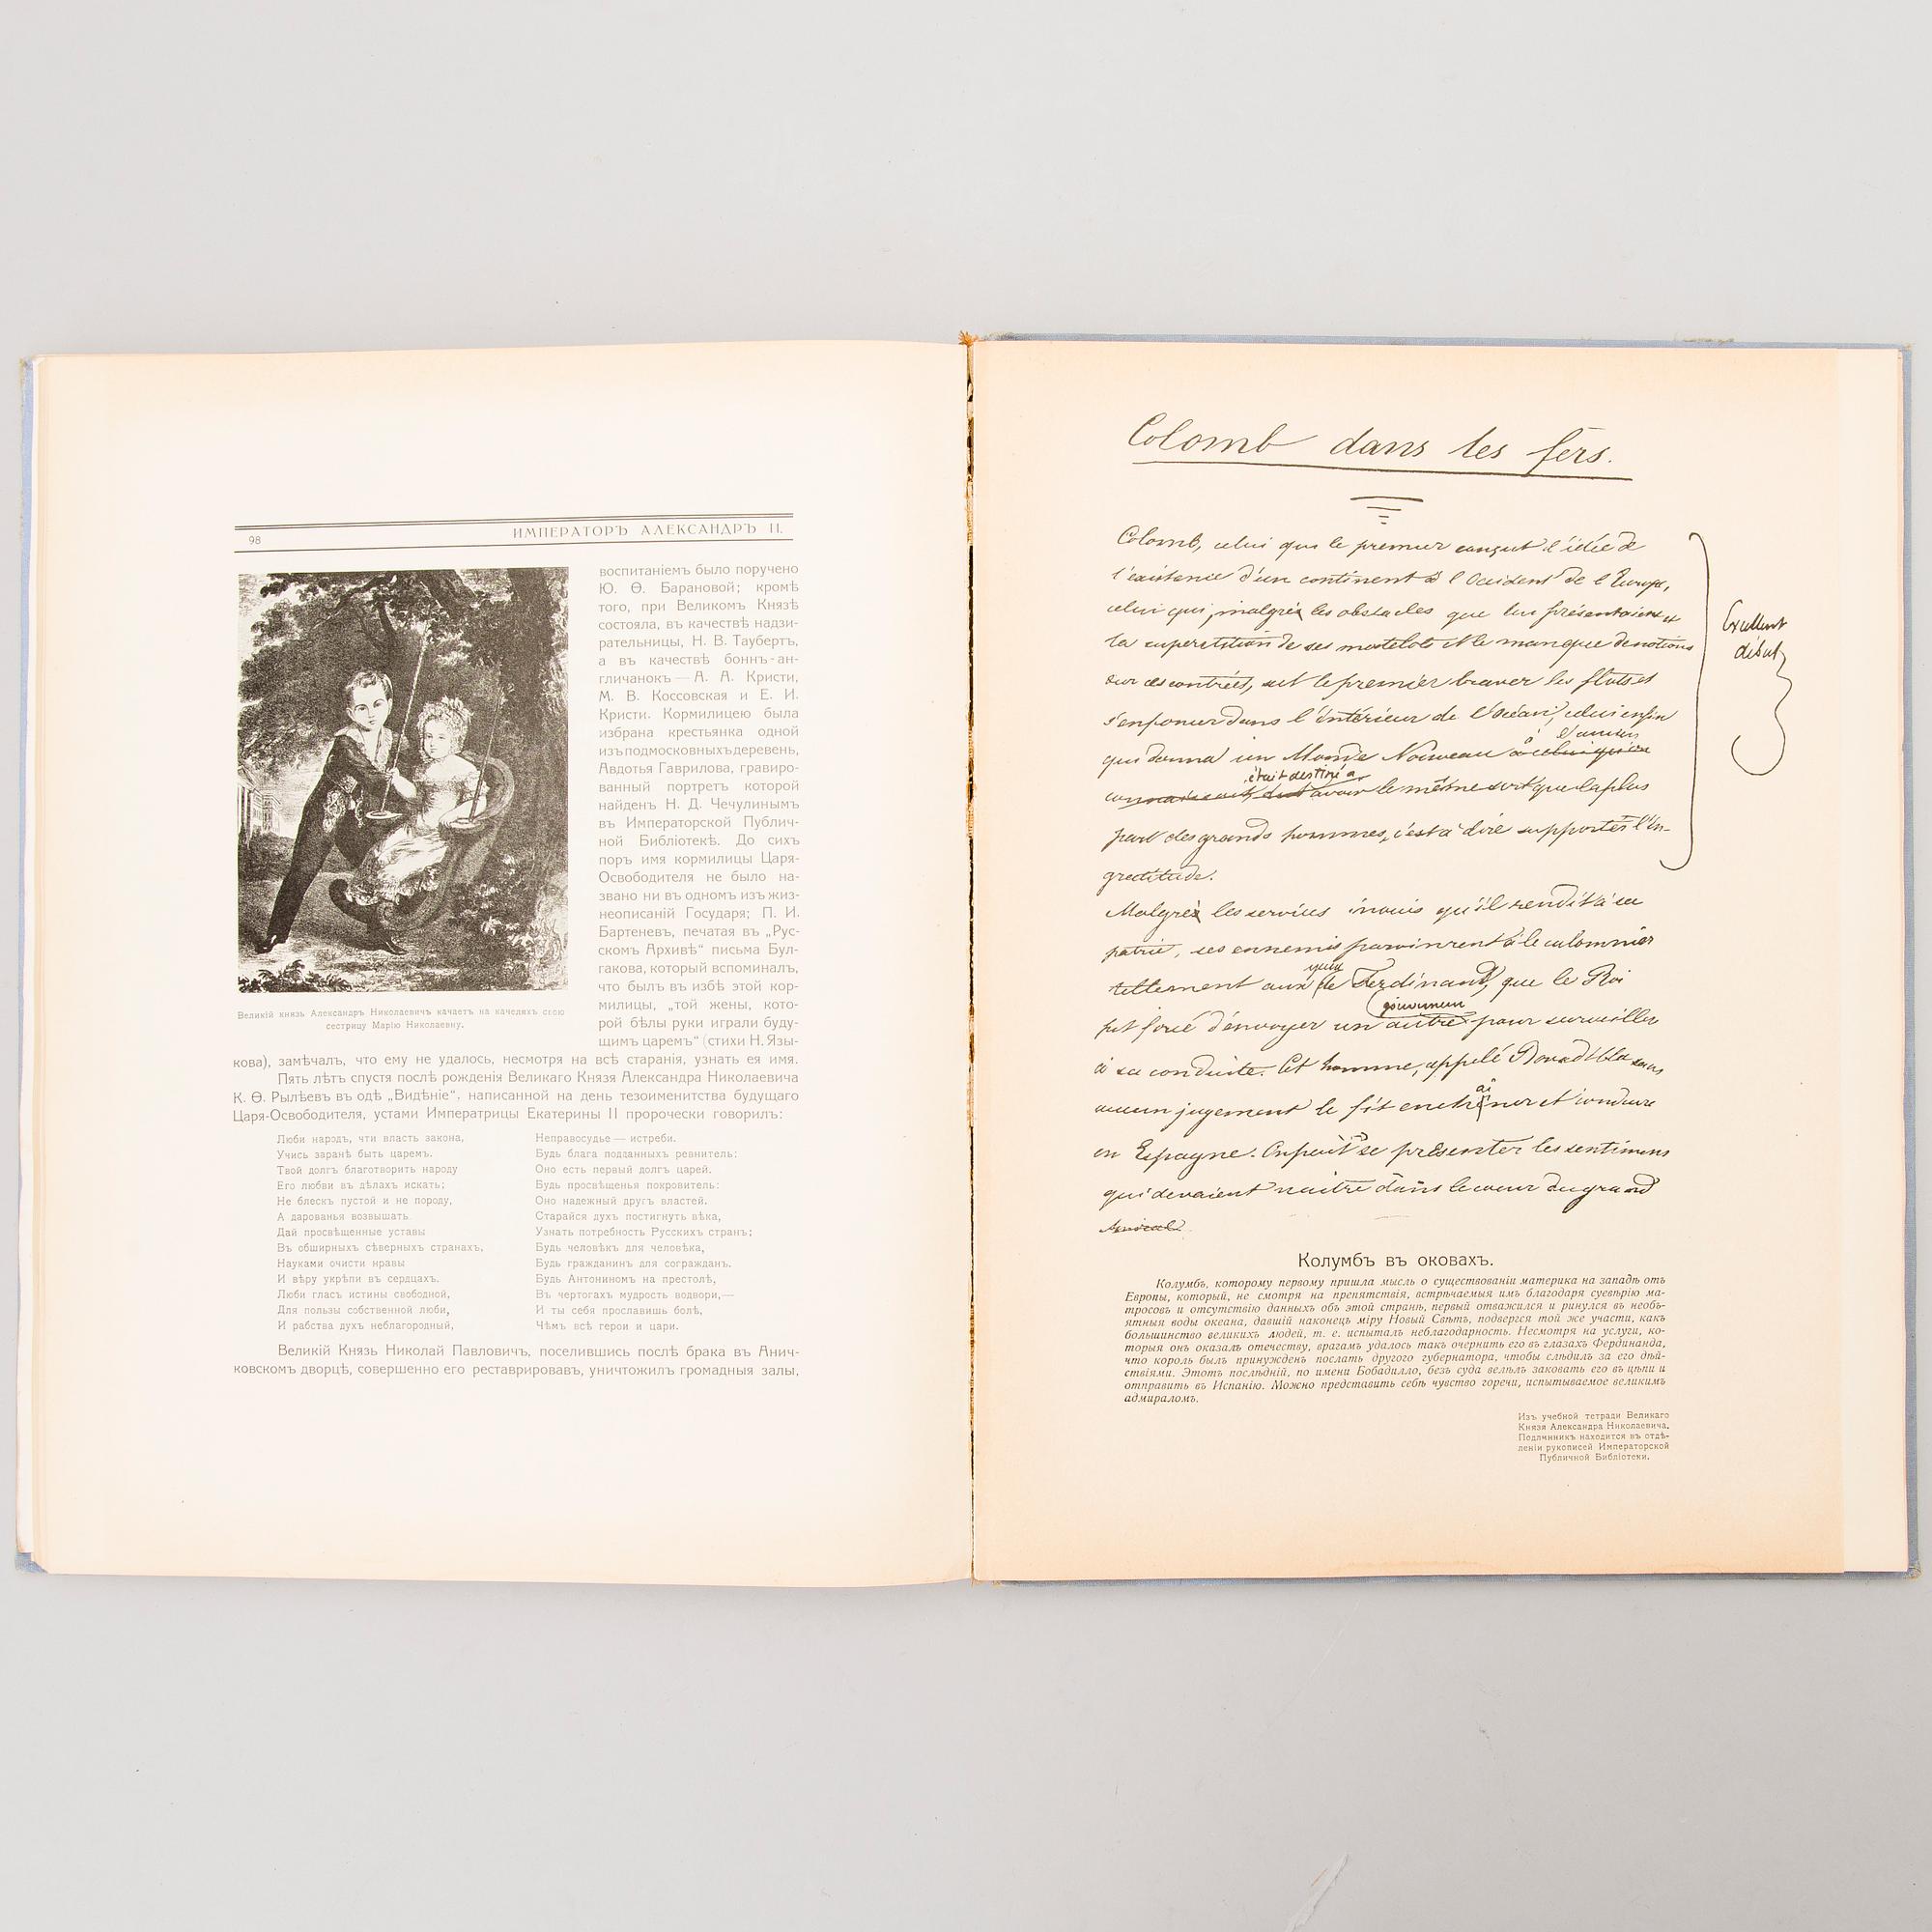 98
ИМПЕРАТОРЪ АЛЕКСАНДРЪ II.
воспитаніемъ было поручено
Ю. Ѳ. Барановой; кромѣ
того, при Великомъ Князѣ
состояла, въ качествѣ надзи-
рательницы, Н. В. Таубертъ,
а въ качествѣ боннъ-ан-
гличанокъ — А. А. Кристи,
М. В. Коссовская и Е. И.
Кристи. Кормилицею была
избрана крестьянка одной
изъ подмосковныхъ деревень,
Авдотья Гаврилова, гравиро-
ванный портретъ которой
найденъ Н. Д. Чечулинымъ
въ Императорской Публич-
ной Библіотекѣ. До сихъ
поръ имя кормилицы Царя-
Освободителя не было на-
звано ни въ одномъ изъ жиз-
неописаній Государя; П. И.
Бартеневъ, печатая въ „Рус-
скомъ Архивѣ“ письма Бул-
гакова, который вспоминалъ,
что былъ въ избѣ этой кор-
милицы, „той жены, кото-
рой бѣлы руки играли буду-
щимъ царемъ“ (стихи Н. Язы-
Великій князь Александръ Николаевичъ качаетъ на качеляхъ свою
сестрицу Марію Николаевну.
кова), замѣчалъ, что ему не удалось, несмотря на всѣ старанія, узнать ея имя.
Пять лѣтъ спустя послѣ рожденія Великаго Князя Александра Николаевича
К. Ѳ. Рылѣевъ въ одѣ „Видѣніе“, написанной на день тезоименитства будущаго
Царя-Освободителя, устами Императрицы Екатерины II пророчески говорилъ:
Люби народъ, чти власть закона,
Учись заранѣ быть царемъ.
Твой долгъ благотворить народу
Его любви въ дѣлахъ искать;
Не блескъ пустой и не породу,
А дарованья возвышать.
Дай просвѣщенные уставы
Въ обширныхъ сѣверныхъ странахъ,
Науками очисти нравы
И вѣру укрѣпи въ сердцахъ.
Люби гласъ истины свободной,
Для пользы собственной люби,
И рабства духъ неблагородный,
Неправосудье — истреби.
Будь блага подданныхъ ревнитель:
Оно есть первый долгъ царей.
Будь просвѣщенья покровитель:
Оно надежный другъ властей.
Старайся духъ постигнуть вѣка,
Узнать потребность Русскихъ странъ;
Будь человѣкъ для человѣка,
Будь гражданинъ для согражданъ.
Будь Антониномъ на престолѣ,
Въ чертогахъ мудрость водвори,—
И ты себя прославишь болѣ,
Чѣмъ всѣ герои и цари.
Великій Князь Николай Павловичъ, поселившись послѣ брака въ Анич-
ковскомъ дворцѣ, совершенно его реставрировавъ, уничтожилъ громадныя залы,
Colomb dans les fers.
Colomb, celui que le premier conçut l'idée de
l'existence d'un continent à l'Occident de l'Europe,
celui qui, malgrès les obstacles que lui présentaient et
la superstition de ses matelots et le manque de notions
sur ces contrées, sut le premier braver les flots et
s'enfoncer dans l'intérieur de l'Océan, celui enfin
qui donna un Monde Nouveau à l'ancien
était destiné à
le même sort que la plus
part des grands hommes, c'est à dire supporter l'in-
gratitude.
Excellent
début
Malgrès les services inouis qu'il rendit à sa
patrie, ses ennemis parvinrent à le calomnier
tellement aux yeux de Ferdinand, que le Roi
gouverneur
fut forcé d'envoyer un autre pour surveiller
à sa conduite. Cet homme, appelé Bovadilla sans
aucun jugement le fit enchaîner et conduire
en Espagne. On peut se présenter les sentimens
qui devaient naitre dans le cœur du grand
Amiral.
Колумбъ въ оковахъ.
Колумбъ, которому первому пришла мысль о существованіи материка на западъ отъ
Европы, который, не смотря на препятствія, встрѣчаемыя имъ благодаря суевѣрію ма-
тросовъ и отсутствію данныхъ объ этой странѣ, первый отважился и ринулся въ необъ-
ятныя воды океана, давшій наконецъ міру Новый Свѣтъ, подвергся той же участи, какъ
большинство великихъ людей, т. е. испыталъ неблагодарность. Несмотря на услуги, ко-
торыя онъ оказалъ отечеству, врагамъ удалось такъ очернить его въ глазахъ Фердинанда,
что король былъ принужденъ послать другого губернатора, чтобы слѣдилъ за его дѣй-
ствіями. Этотъ послѣдній, по имени Бобадилло, безъ суда велѣлъ заковать его въ цѣпи и
отправить въ Испанію. Можно представить себѣ чувство горечи, испытываемое великимъ
адмираломъ.
Изъ учебной тетради Великаго
Князя Александра Николаевича.
Подлинникъ находится въ отдѣ-
леніи рукописей Императорской
Публичной Библіотеки.